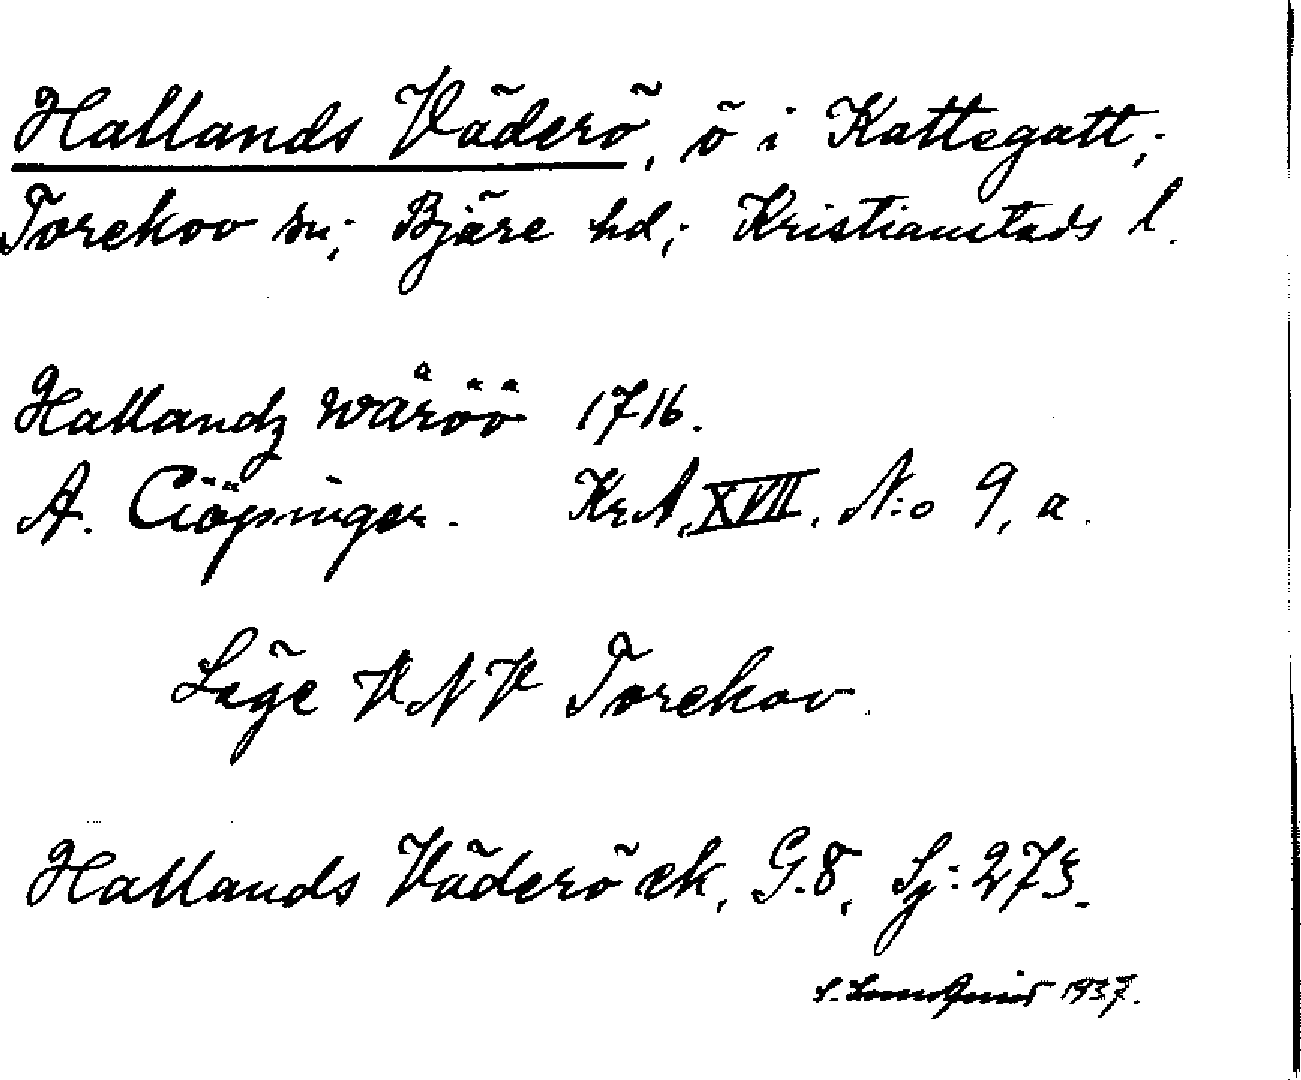 Hallands Väderö, ö i Kattegatt,;
Torekov sn,; Bjäre hd,; Kristianstads l.
Hallandz wåröö 1716.
A. Ciöpinger. KrA, XVII. N:o 9, a.
Läge VNV Torekov.
Hallands Väderö ek, G.8, Sj: 273.
S. Lundquist 1937.